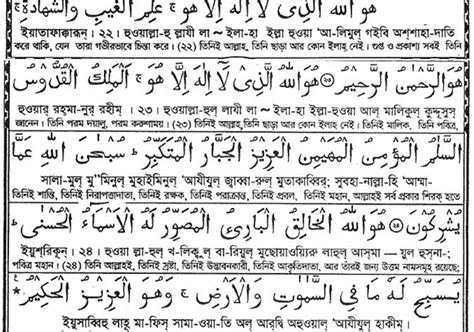 هُوَ اللّٰهُ الَّذِىْ لَآ اِلٰهَ اِلَّا هُوَ ۚ عٰلِمُ الْغَيْبِ وَالشَّهَادَةِ ۚ
ইয়াতাফাক্কারূন্। ২২। হুওয়াল্লা-হু ল্লাযী লা ~ ইলা-হা ইল্লা হুওয়া 'আ-লিমুল্ গইবি অশ্শাহা-দাতি
করে থাকে, যেন তারা গভীরভাবে চিন্তা করে। (২২) তিনিই আল্লাহ, তিনি ছাড়া আর কোন ইলাহ নেই। গুপ্ত ও প্রকাশ্য সবই তিনি
هُوَ الرَّحْمٰنُ الرَّحِيْمُ ۝ هُوَ اللّٰهُ الَّذِىْ لَآ اِلٰهَ اِلَّا هُوَ ۚ اَلْمَلِكُ الْقُدُّوْسُ
হুওয়ার্ রহ্মা-নুর্ রহীম্। ২৩। হুওয়াল্লা-হুল্ লাযী লা ~ ইলা-হা ইল্লা-হুওয়া আল্ মালিকুল্ কুদ্দূসুস্
জানেন। তিনি পরম দয়ালু, পরম করুণাময়। (২৩) তিনিই আল্লাহ, তিনি ছাড়া আর কোন ইলাহ নেই। তিনিই মালিক, তিনি পবিত্র,
السَّلٰمُ الْمُؤْمِنُ الْمُهَيْمِنُ الْعَزِيْزُ الْجَبَّارُ الْمُتَكَبِّرُ ۚ سُبْحٰنَ اللّٰهِ عَمَّا
সালা-মুল্ মু'মিনুল্ মুহাইমিনুল্ 'আযীযুল্ জ্বাব্বা-রুল্ মুতাকাব্বির্; সুবহা-নাল্লা-হি 'আম্মা-
তিনিই শান্তি, তিনিই নিরাপত্তাদাতা, তিনিই রক্ষক, তিনিই পরাক্রান্ত, তিনিই প্রবল, তিনিই মহান, আল্লাহই সর্ব প্রকার শিরক্ হতে
يُشْرِكُوْنَ ۝ هُوَ اللّٰهُ الْخَالِقُ الْبَارِئُ الْمُصَوِّرُ لَهُ الْاَسْمَآءُ الْحُسْنٰى ۚ
ইয়ুশ্রিকূন্। ২৪। হুওয়া ল্লা-হুল্ খ-লিকু্ল্ বা-রিয়ুল্ মুছোয়াওয়্যিরু লাহুল্ আস্মা — য়ুল্ হুসনা-;
পবিত্র মহান। (২৪) তিনিই আল্লাহই, তিনিই স্রষ্টা, তিনিই উদ্ভাবনকারী, তিনিই আকৃতিদাতা, আর তাঁরই জন্য উত্তম নামসমূহ রয়েছে;
يُسَبِّحُ لَهٗ مَا فِى السَّمٰوٰتِ وَالْاَرْضِ ۚ وَهُوَ الْعَزِيْزُ الْحَكِيْمُ ۝
ইয়ুসাব্বিহু লাহূ মা-ফিস্ সামা-ওয়া-তি অল্ আর্দ্বি অহুওয়াল্ 'আযীযুল্ হাকীম্।